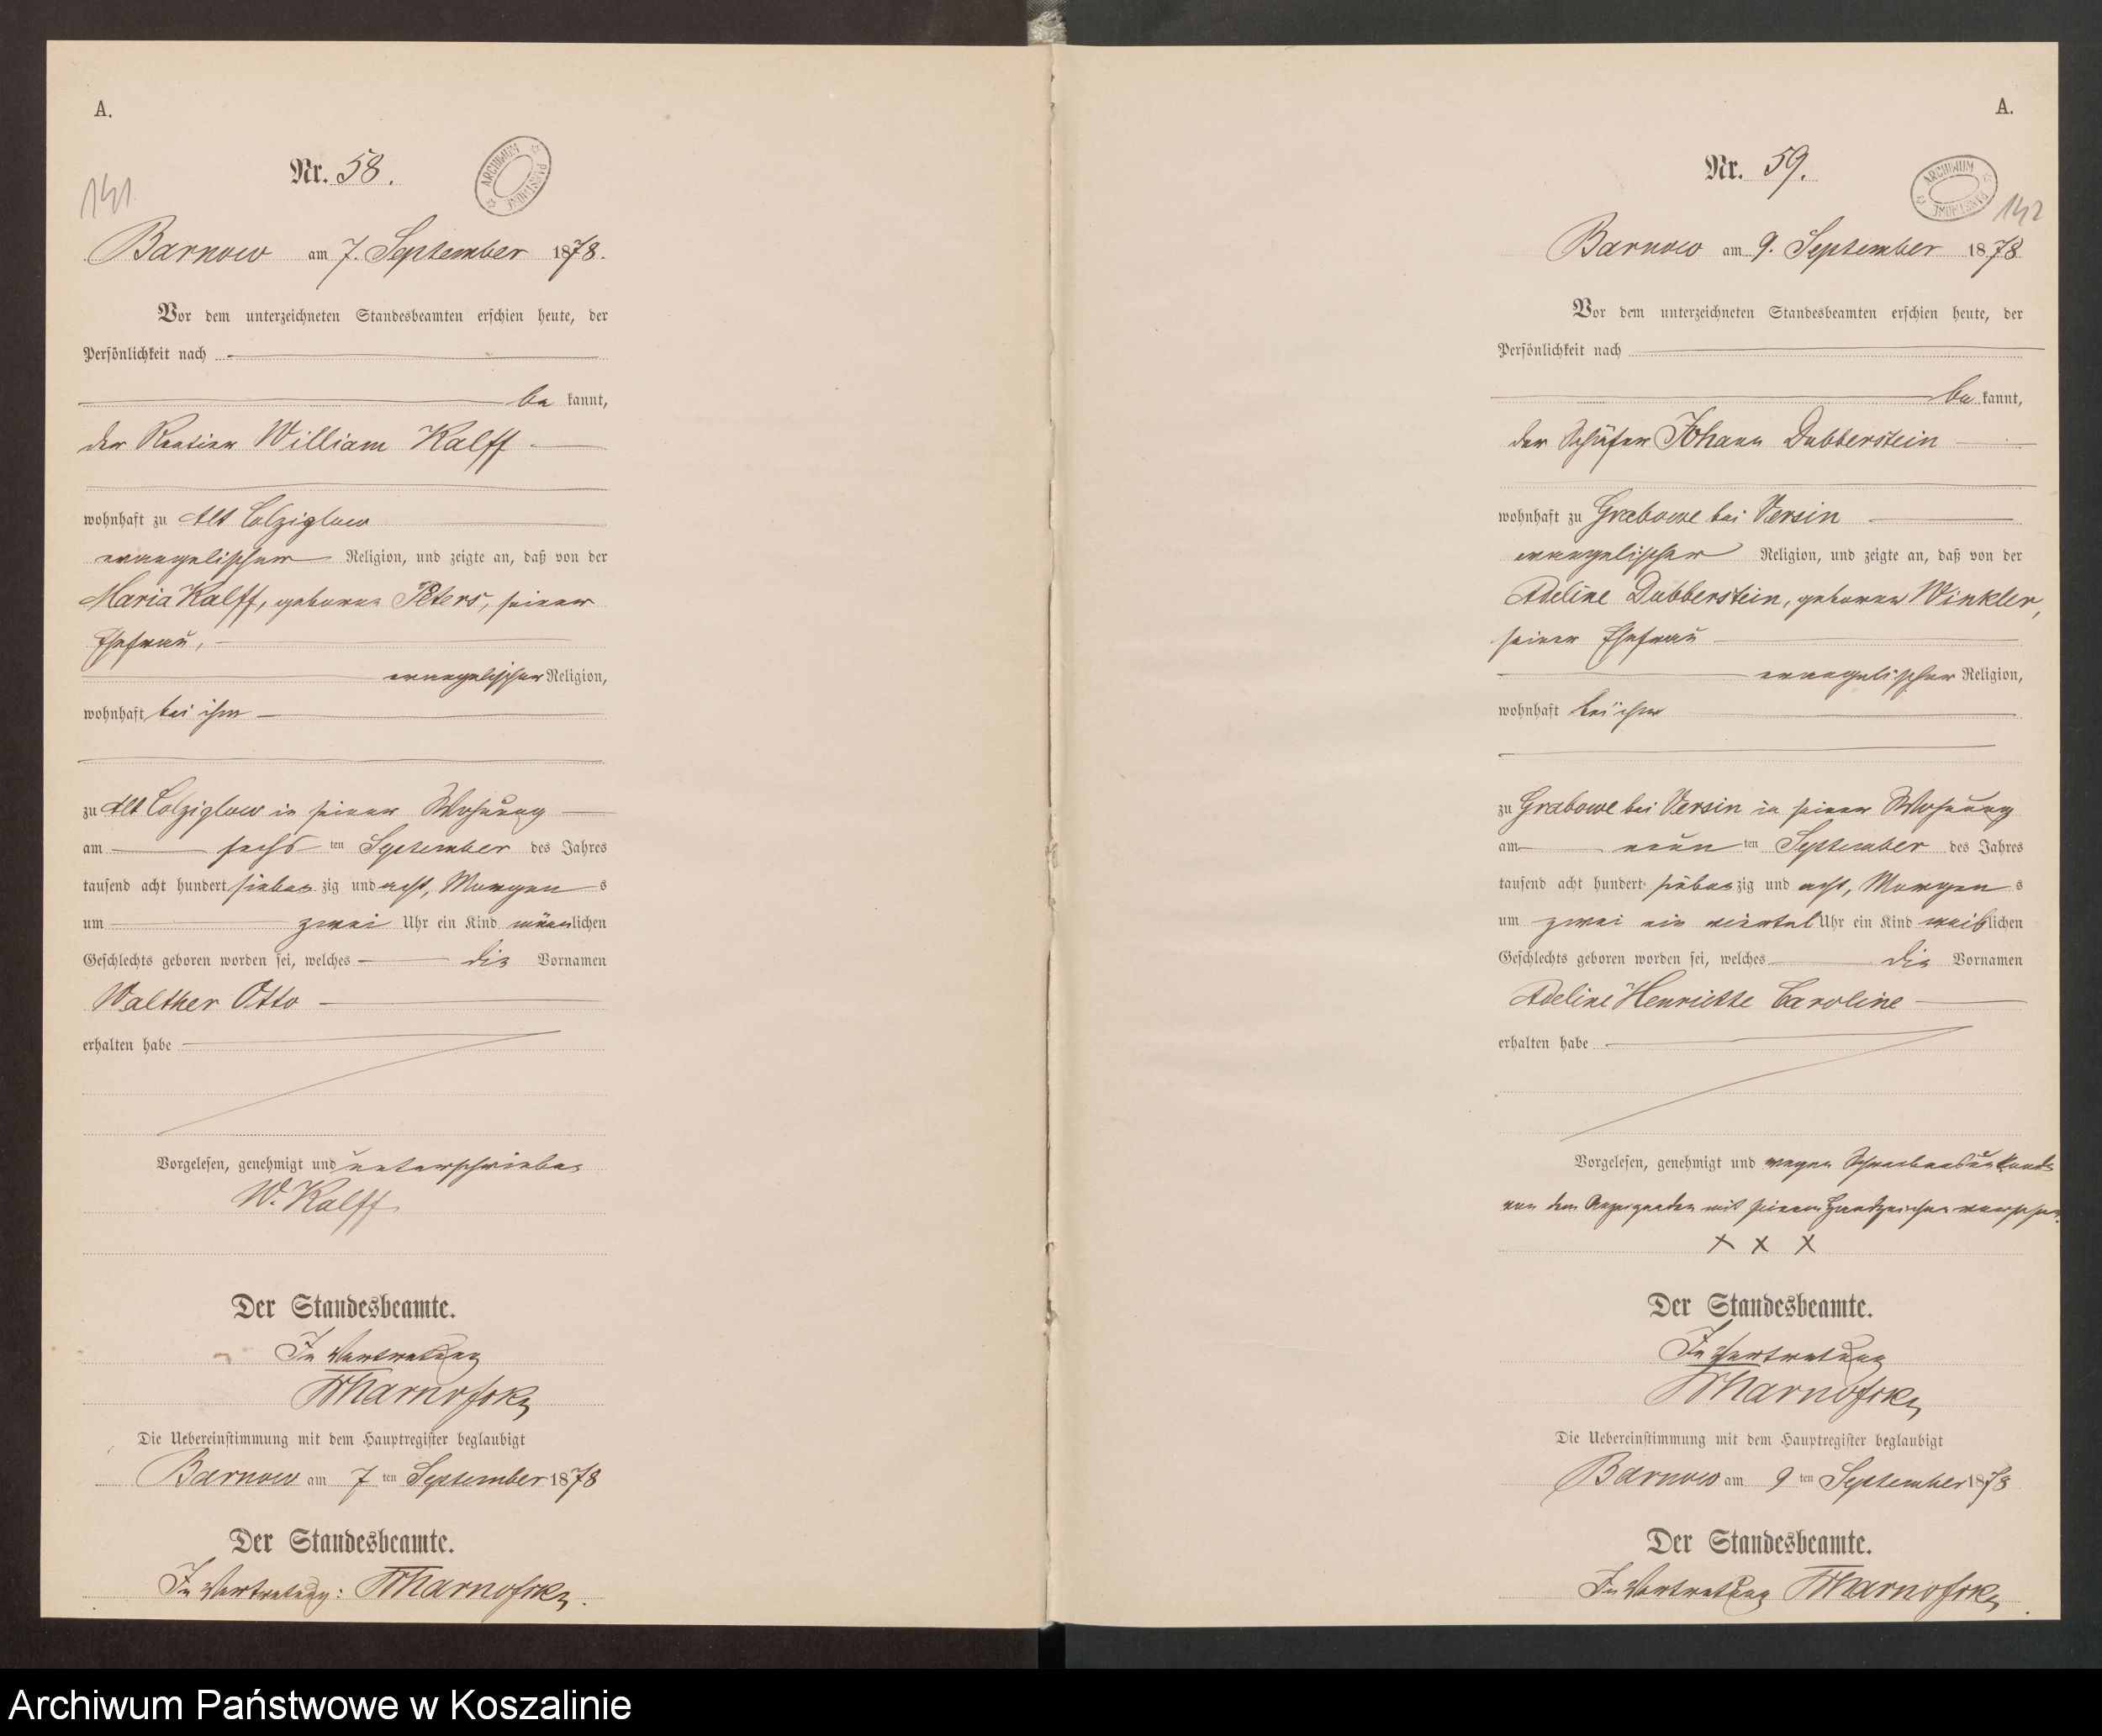 A.
Nr. 58.
ARCHIWUM PAŃSTWOWE
141
Barnow am 7. September 1878.
Vor dem unterzeichneten Standesbeamten erschien heute, der
Persönlichkeit nach
be kannt,
der Rentier William Kalff
wohnhaft zu Alt Colziglow
evangelischer Religion, und zeigte an, daß von der
Maria Kalff, geborne Peters, seiner
Ehefrau,
evangelischer Religion,
wohnhaft bei ihm
zu Alt Colziglow in seiner Wohnung
am sechs ten September des Jahres
tausend acht hundert sieben zig und acht, Morgen s
um zwei Uhr ein Kind männlichen
Geschlechts geboren worden sei, welches die Vornamen
Walther Otto
erhalten habe
Vorgelesen, genehmigt und unterschrieben
W. Kalff
Der Standesbeamte.
In Vertretung
Die Uebereinstimmung mit dem Hauptregister beglaubigt
Barnow am 7 ten September 1878
Der Standesbeamte.
In Vertretung:
A.
Nr. 59.
ARCHIWUM PAŃSTWOWE
142
Barnow am 9. September 1878
Vor dem unterzeichneten Standesbeamten erschien heute, der
Persönlichkeit nach
be kannt,
der Schäfer Johann Dubberstein
wohnhaft zu Grabowe bei Versin
evangelischer Religion, und zeigte an, daß von der
Adeline Dubberstein, geboren Winkler,
seiner Ehefrau
evangelischer Religion,
wohnhaft bei ihm
zu Grabowe bei Versin in seiner Wohnung
am neun ten September des Jahres
tausend acht hundert sieben zig und acht, Morgen s
um zwei ein viertel Uhr ein Kind weiblichen
Geschlechts geboren worden sei, welches die Vornamen
Adeline Henriette Caroline
erhalten habe
Vorgelesen, genehmigt und wegen Schreibensunkunde
von dem Anzeigenden mit seinem Handzeichen versehen.
x x x
Der Standesbeamte.
In Vertretung
Die Uebereinstimmung mit dem Hauptregister beglaubigt
Barnow am 9 ten September 1878
Der Standesbeamte.
In Vertretung
Archiwum Państwowe w Koszalinie